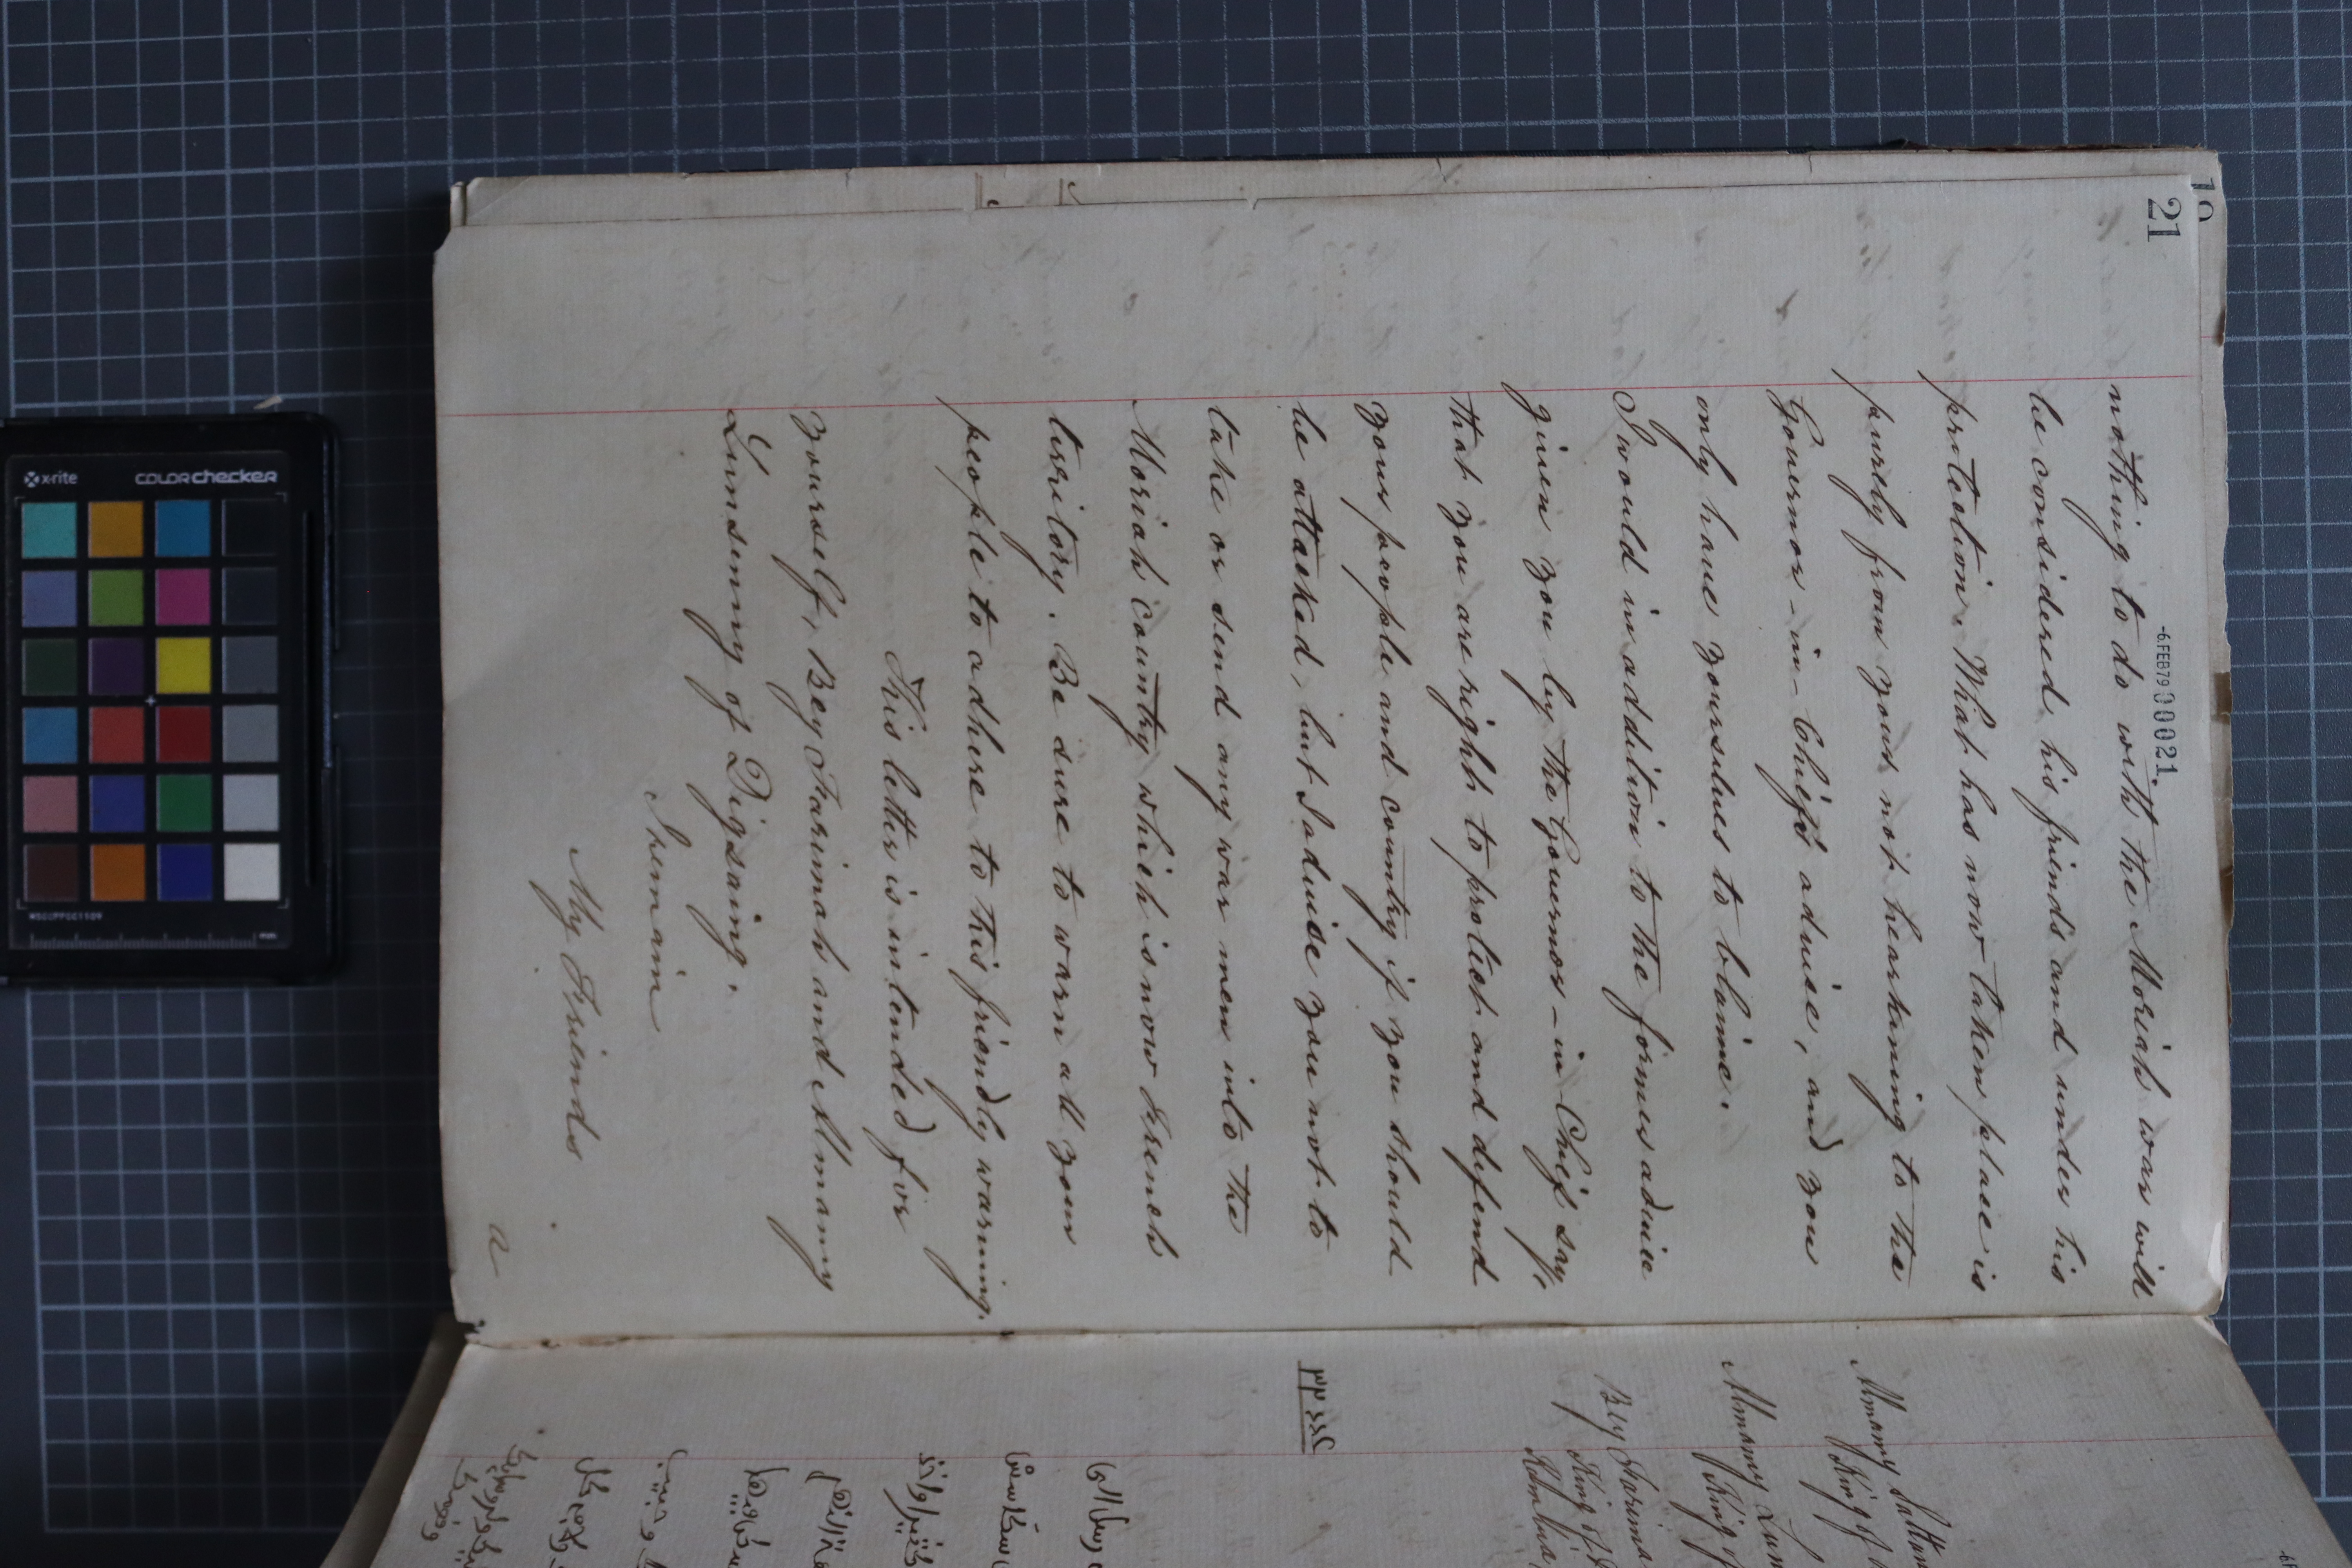 21
-6.FEB79 00021
nothing to do with the Moriah war will
be considered his friends and under his
protection. What has now taken place is
purely from your not hearkening to the
Governor-in-Chief's advice, and you
only have yourselves to blame.
I would in addition to the former advice
given you by the Governor-in-Chief say,
that you are right to protect and defend
your people and country if you should
be attacked, but I advise you not to
take or send any war men into the
Moriah Country which is now French
territory. Be sure to warn all your
people to adhere to this friendly warning.
This letter is intended for
yourself, Bey Farimah and Almamy
Lunsenny of Digsaing.
I remain
My Friends
a
Almamy Sattan
King of
Almamy Lan
King of
Bey Farima
King of
Kambia
x-rite
colorchecker
MSCCPPCC1109
mm